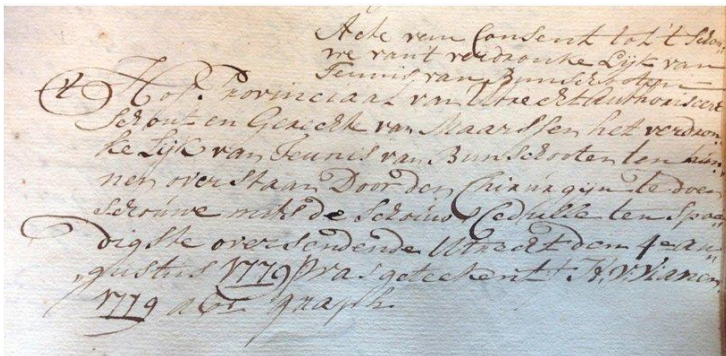 Acte van Consent tot 't schou„
we van't verdronke Lijk van
Teunis van Bunschoten
't Hof Provinciaal van Utrecht Authoriseert
Schout en Gerecht van Maarssen het verdron„
ke Lijk van Teunis van Bunschooten ten
nen overstaan Door den Chirurgijn te doen
schouwe mits de schouw Cedulle ten Spoe„
digste oversendende Utrecht den 4e au„
gustus 1779 Was geteekent H, V. Vianen
1779